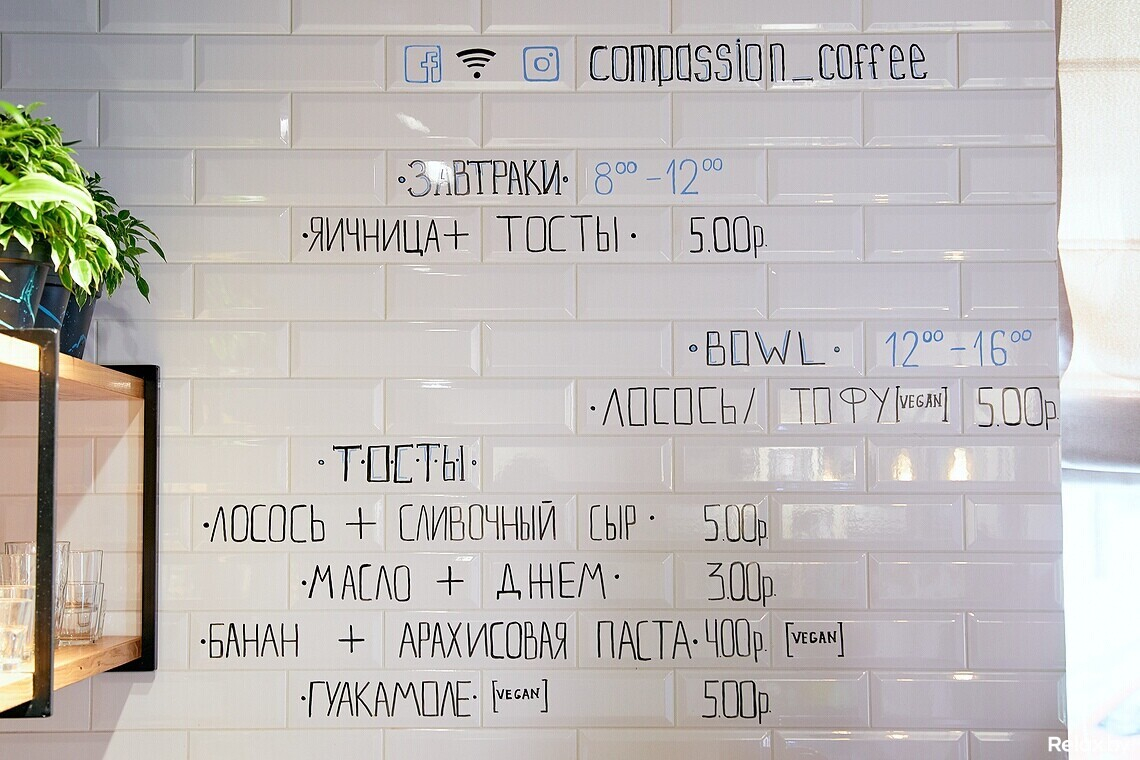 compassion_coffee
·ЗАВТРАКИ· 8⁰⁰-12⁰⁰
·ЯИЧНИЦА+ ТОСТЫ· 5.00р.
·BOWL· 12⁰⁰-16⁰⁰
·ЛОСОСЬ/ ТОФУ[VEGAN] 5.00р.
·ТОСТЫ·
·ЛОСОСЬ + СЛИВОЧНЫЙ СЫР· 5.00р.
·МАСЛО + ДЖЕМ· 3.00р.
·БАНАН + АРАХИСОВАЯ ПАСТА· 4.00р. [VEGAN]
·ГУАКАМОЛЕ· [VEGAN] 5.00р.